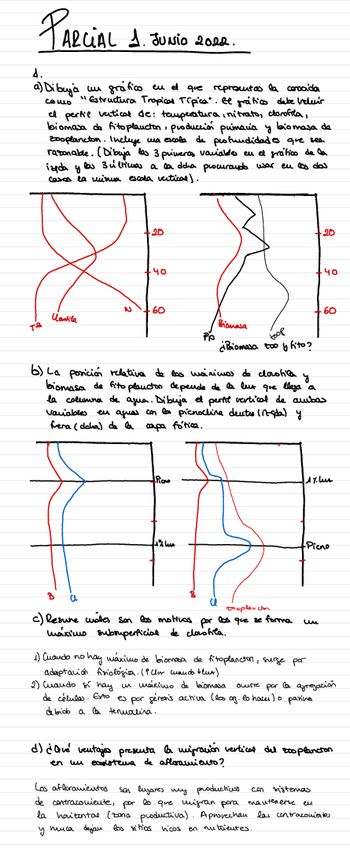 PARCIAL 1. JUNIO 2022.
1.
a) Dibuja un gráfico en el que representes la conocida
como "Estructura Tropical Típica". El gráfico debe incluir
el perfil vertical de: temperatura, nitrato, clorofila,
biomasa de fitoplancton, producción primaria y biomasa de
zooplancton. Incluye una escala de profundidades que sea
razonable. (Dibuja las 3 primeras variables en el gráfico de la
izqda y las 3 últimas a la dcha procurando usar en los dos
casos la misma escala vertical).
20
40
60
Tª
Clorofila
N
20
40
60
PP
Biomasa
zoop
¿Biomasa zoo y fito?
b) La posición relativa de los máximos de clorofila y
biomasa de fitoplancton depende de la luz que llega a
la columna de agua. Dibuja el perfil vertical de ambas
variables en aguas con la picnoclina dentro (izqda) y
fuera (dcha) de la capa fótica.
Picno
1% luz
B
Cl
1% luz
Picno
B
Cl
zooplancton
c) Resume cuáles son los motivos por los que se forma un
máximo subsuperficial de clorofila.
1) Cuando no hay máximo de biomasa de fitoplancton, surge por
adaptación fisiológica. (↑Clor cuando ↓luz)
2) Cuando sí hay un máximo de biomasa ocurre por la agregación
de células. Esto es por génesis activa (los og. lo hacen) o pasiva
debido a la termoclina.
d) ¿Qué ventajas presenta la migración vertical del zooplancton
en un ecosistema de afloramiento?
Los afloramientos son lugares muy productivos con sistemas
de contracorriente, por lo que migran para mantenerse en
la horizontal (zona productiva). Aprovechan las contracorrientes
y nunca dejan los sitios ricos en nutrientes.